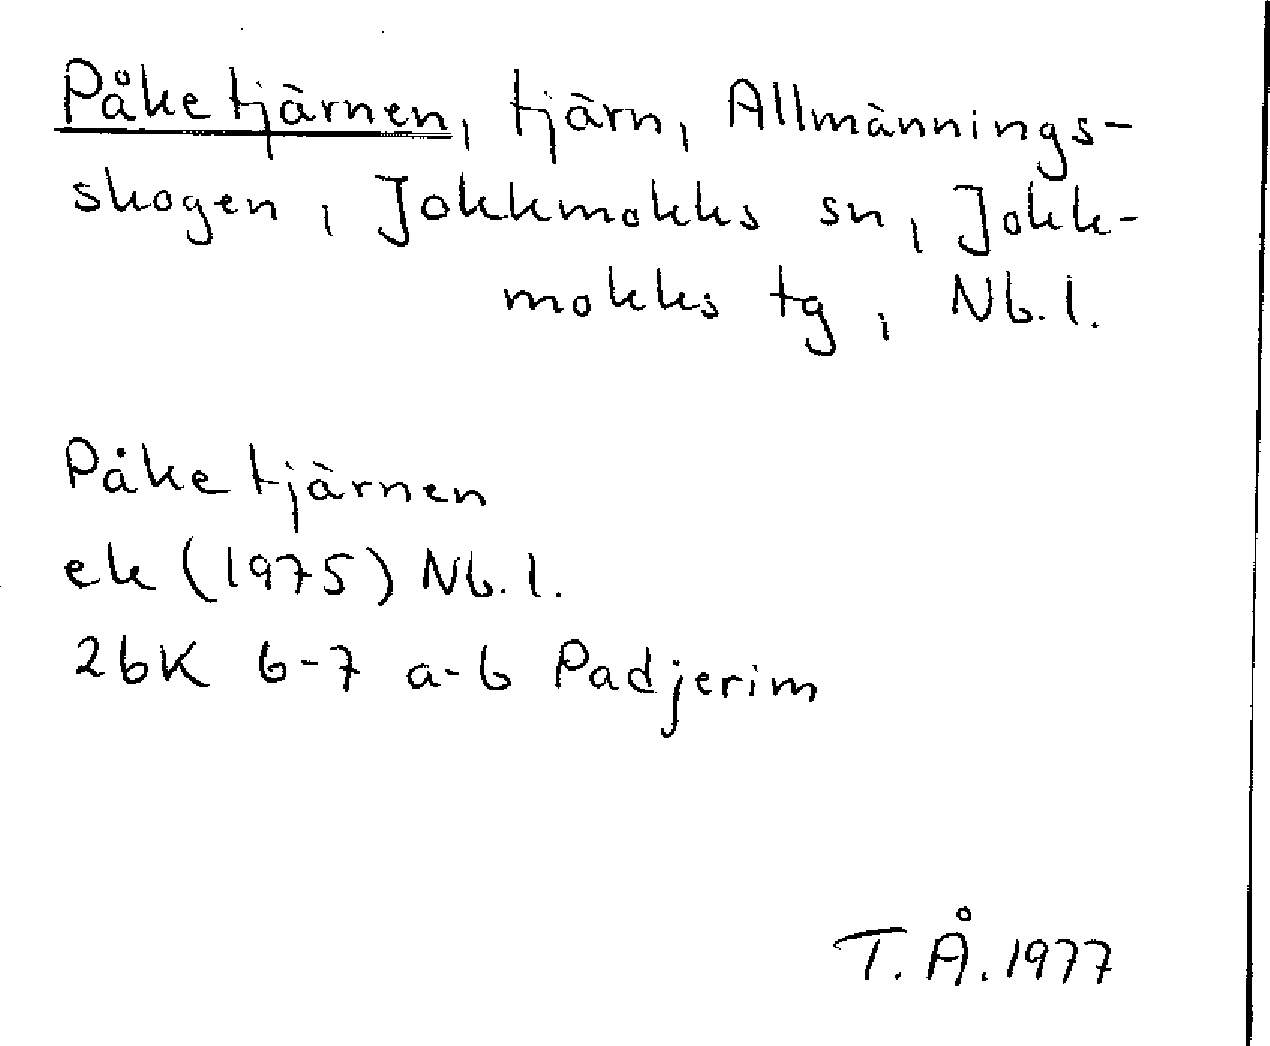 Påketjärnen, tjärn, Allmännings-
skogen, Jokkmokks sn, Jokk-
mokks tg, Nb.l.
Påketjärnen
ek (1975) Nb.l.
26K 6-7 a-b Padjerim
T.Å.1977